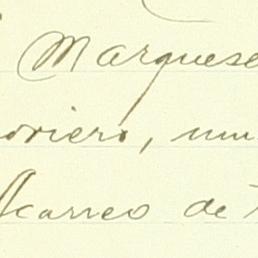 Marquese
oviero, mu
Acarreo de